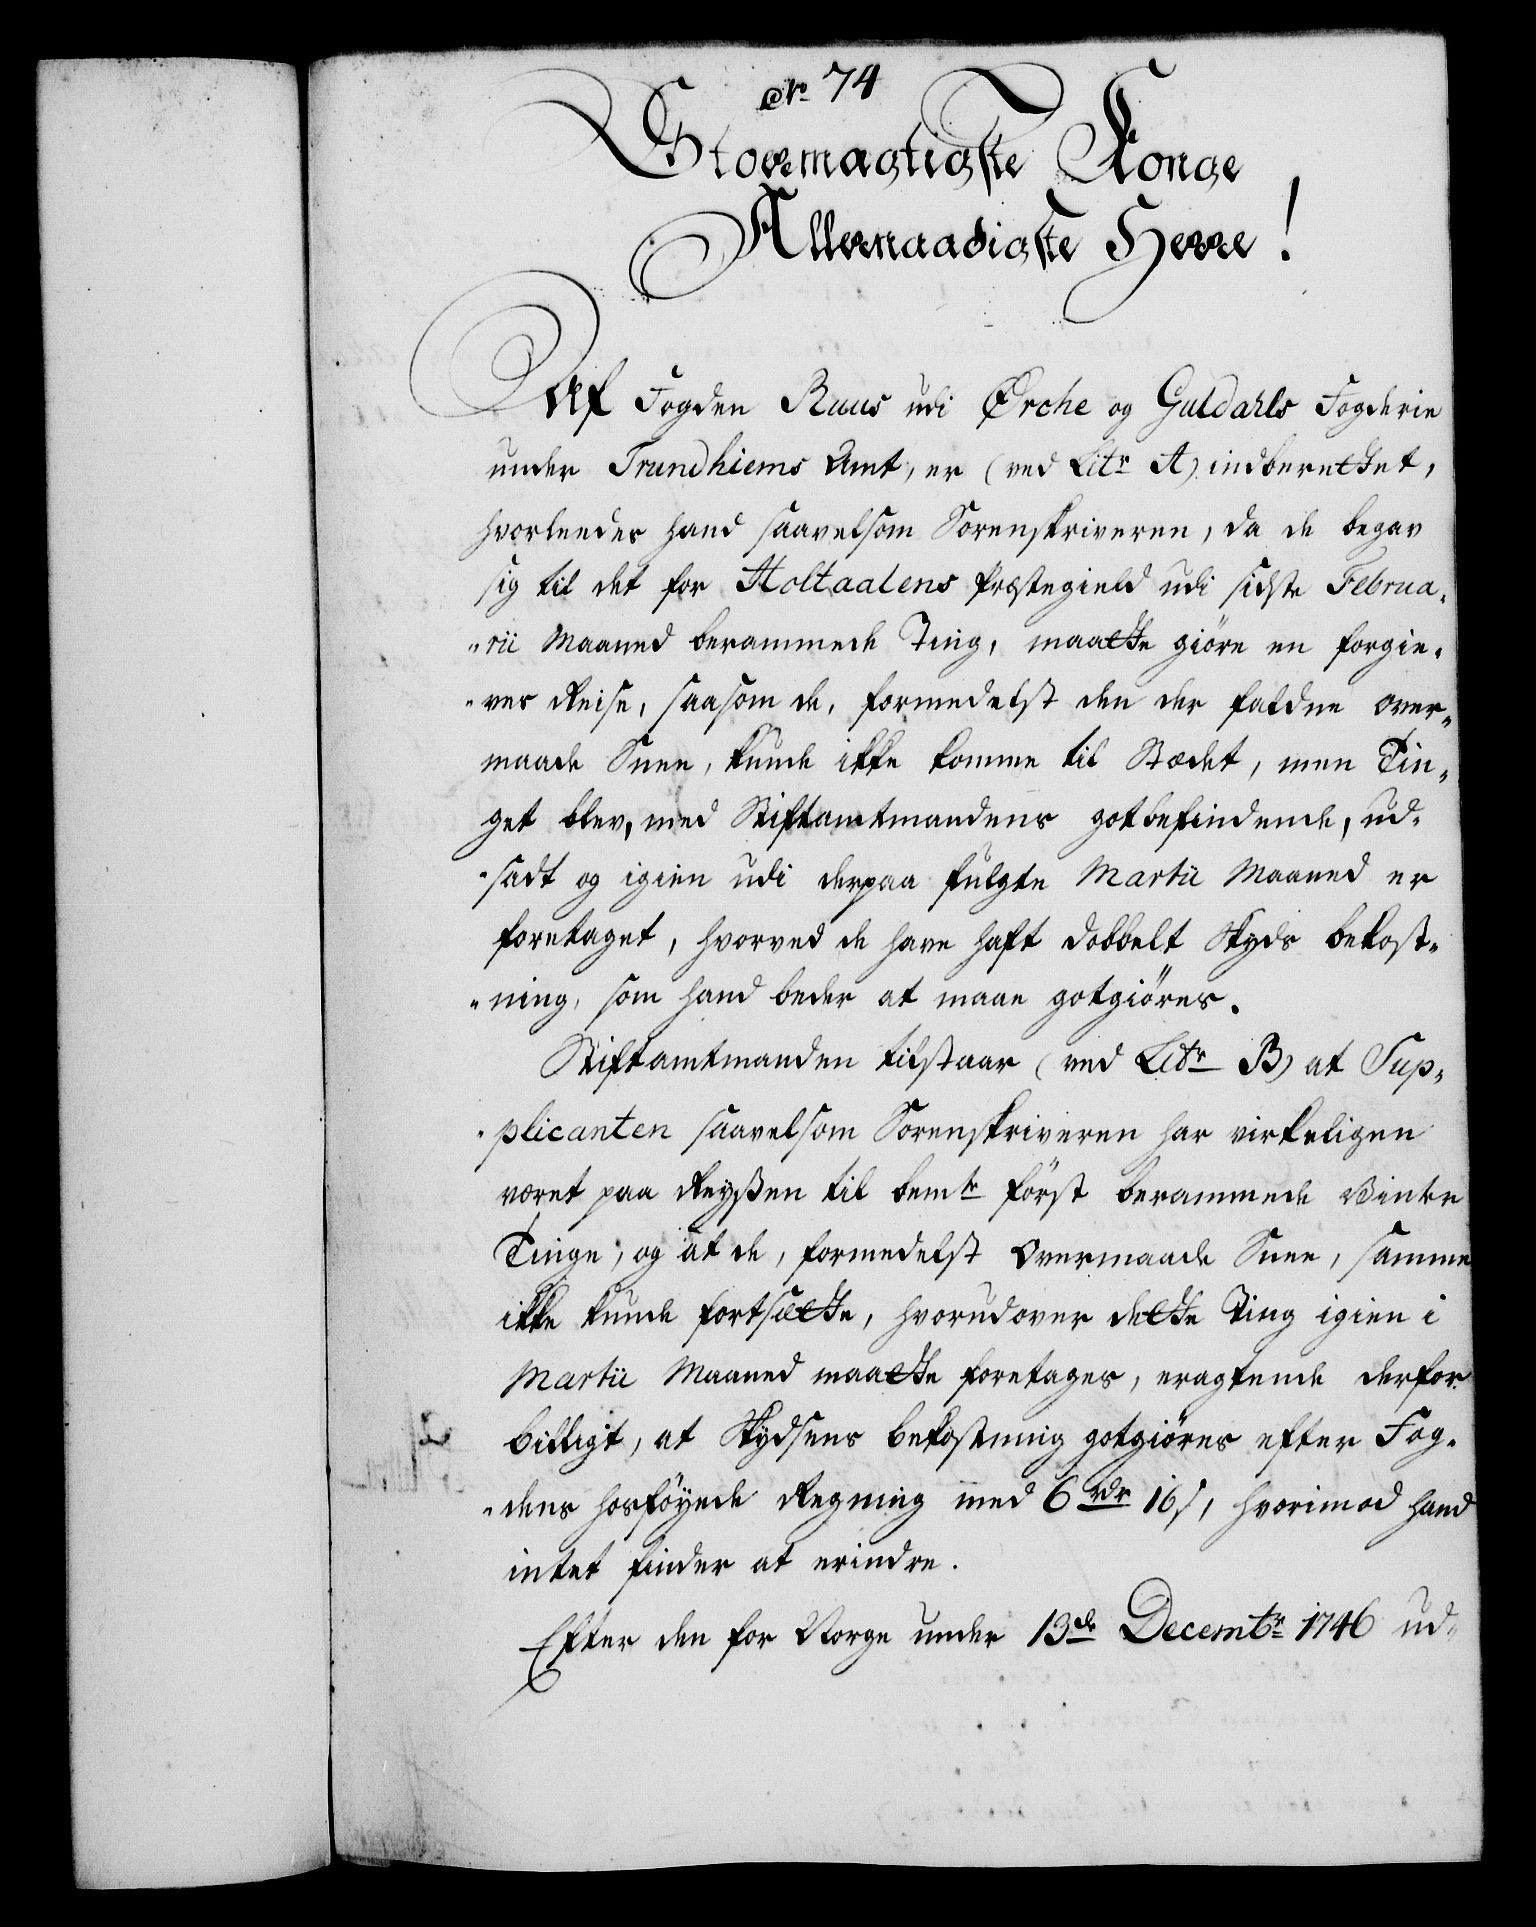 No 74
Stormægtigste Konge
Allernaadigste Herre!
Af Fogden Ruus udi Ørche og Guldahls Fogderie
under Trundhiems Amt, er (ved Litr A) indberettet,
hvorleedes hand saavelsom Sorenskriveren, da de begav
sig til det for Holtaalens Præstegield udi sidste Februa-
rii Maaned berammede Ting, maatte giöre en forgie-
ves Reise, saasom de, formedelst den der faldne over-
maade Snee, kunde ikke komme til Stædet, men Tin-
get blev, med Stiftamtmandens gotbefindende, ud-
sadt og igien udi derpaa fulgte Martii Maaned er
foretaget, hvorved de have haft dobbelt Skyds bekost-
ning, som hand beder at maae gotgiöres.
Stiftamtmanden tilstaar (ved Litr B) at Sup-
plicanten saavelsom Sorenskriveren har virkeligen
været paa Reyßen til bemte först berammede Vinter
Tinge, og at de, formedelst Overmaade Snee, samme
ikke kunde fortsætte, hvorudover dette Ting igien i
Martii Maaned maatte foretages, eragtende derfor
billigt, at Skydsens bekostning gotgiöres efter Fog-
dens hosföyede Regning med 6 rdr 16 s, hvorimod hand
intet finder at erindre.
Efter den for Norge under 13de Decembr 1746 ud-